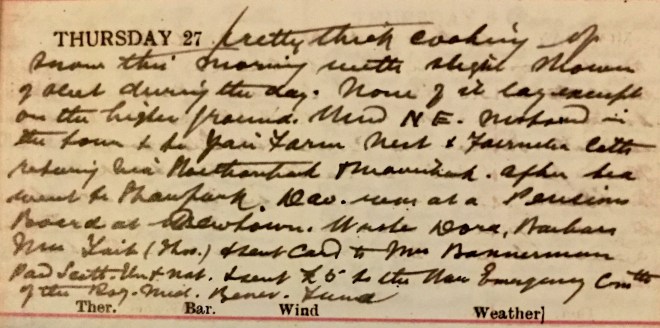 THURSDAY 27 pretty thick coating of
snow this morning with slight showers
of sleet during the day. None of it lay except
on the higher ground. Wind N.E. in
the town & to Yair Farm & Fairnilee
via after tea
went to Dav. was at a Pensions
Board at Newtown. Wrote Dora, Barbara
Mrs Tait (Thos.) & sent Card to Mrs Bannerman
Paid Scott. & sent £5 to the War Emergency Comtte
of the Roy. Med. Benev. Fund
Ther. Bar. Wind Weather